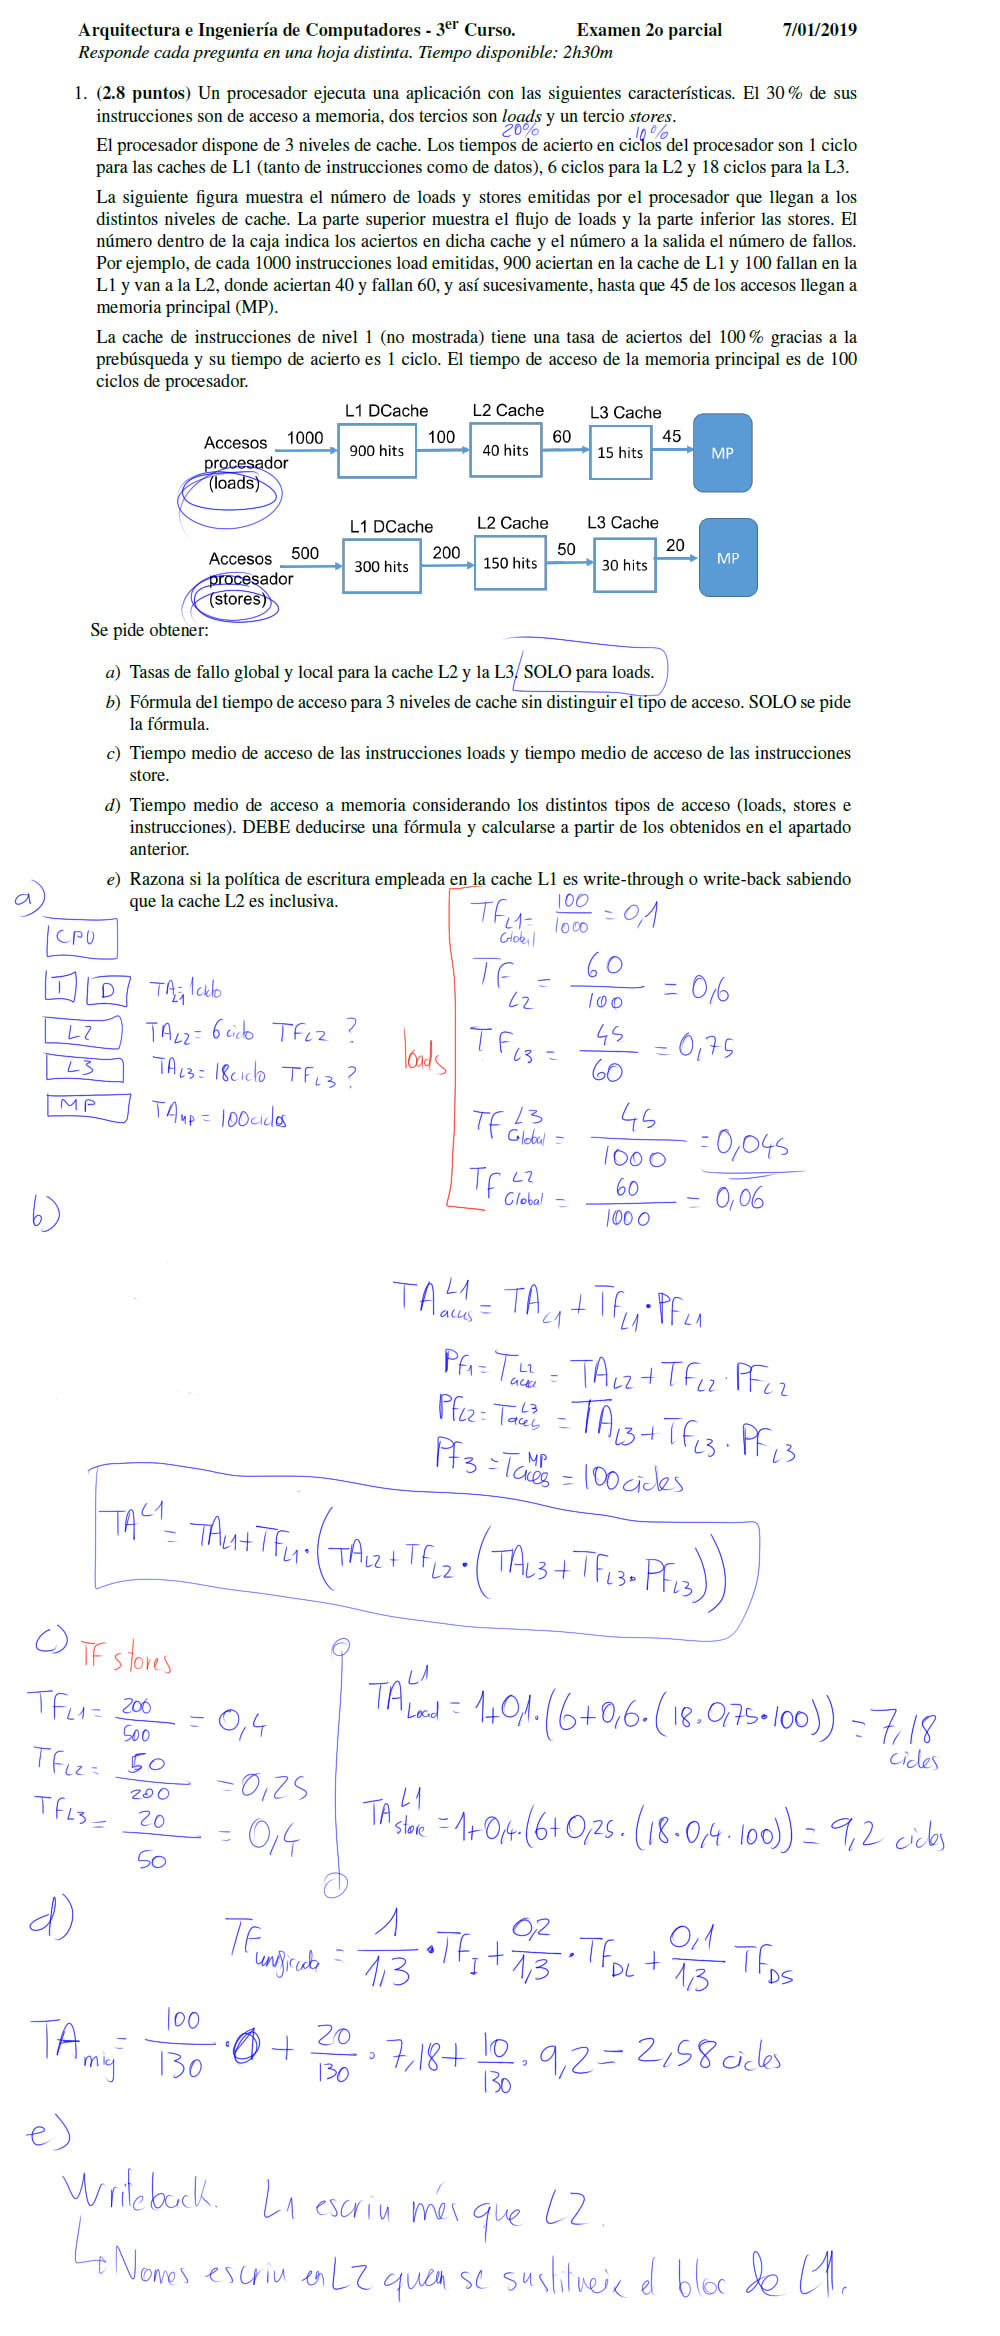 Arquitectura e Ingeniería de Computadores - 3er Curso. Examen 2o parcial 7/01/2019
Responde cada pregunta en una hoja distinta. Tiempo disponible: 2h30m
1. (2.8 puntos) Un procesador ejecuta una aplicación con las siguientes características. El 30 % de sus
instrucciones son de acceso a memoria, dos tercios son loads y un tercio stores.
20% 10%
El procesador dispone de 3 niveles de cache. Los tiempos de acierto en ciclos del procesador son 1 ciclo
para las caches de L1 (tanto de instrucciones como de datos), 6 ciclos para la L2 y 18 ciclos para la L3.
La siguiente figura muestra el número de loads y stores emitidas por el procesador que llegan a los
distintos niveles de cache. La parte superior muestra el flujo de loads y la parte inferior las stores. El
número dentro de la caja indica los aciertos en dicha cache y el número a la salida el número de fallos.
Por ejemplo, de cada 1000 instrucciones load emitidas, 900 aciertan en la cache de L1 y 100 fallan en la
L1 y van a la L2, donde aciertan 40 y fallan 60, y así sucesivamente, hasta que 45 de los accesos llegan a
memoria principal (MP).
La cache de instrucciones de nivel 1 (no mostrada) tiene una tasa de aciertos del 100 % gracias a la
prebúsqueda y su tiempo de acierto es 1 ciclo. El tiempo de acceso de la memoria principal es de 100
ciclos de procesador.
L1 DCache L2 Cache L3 Cache
Accesos 1000 900 hits 100 40 hits 60 15 hits 45 MP
procesador
(loads)
L1 DCache L2 Cache L3 Cache
Accesos 500 300 hits 200 150 hits 50 30 hits 20 MP
procesador
(stores)
Se pide obtener:
a) Tasas de fallo global y local para la cache L2 y la L3, SOLO para loads.
b) Fórmula del tiempo de acceso para 3 niveles de cache sin distinguir el tipo de acceso. SOLO se pide
la fórmula.
c) Tiempo medio de acceso de las instrucciones loads y tiempo medio de acceso de las instrucciones
store.
d) Tiempo medio de acceso a memoria considerando los distintos tipos de acceso (loads, stores e
instrucciones). DEBE deducirse una fórmula y calcularse a partir de los obtenidos en el apartado
anterior.
e) Razona si la política de escritura empleada en la cache L1 es write-through o write-back sabiendo
que la cache L2 es inclusiva.
a)
CPU
I D TA L1 = 1 ciclo
L2 TAL2 = 6 ciclo TFL2 ?
L3 TAL3 = 18 ciclo TFL3 ?
MP TAMP = 100 ciclos
loads
TFL1 Global = 100/1000 = 0,1
TF L2 = 60/100 = 0,6
TFL3 = 45/60 = 0,75
TF L3 Global = 45/1000 = 0,045
TF L2 Global = 60/1000 = 0,06
b)
TA L1 acces = TAL1 + TFL1 · PFL1
PF1 = T L2 acces = TAL2 + TFL2 · PFL2
PFL2 = T L3 acces = TAL3 + TFL3 . PFL3
PF3 = T MP acces = 100 cicles
TA L1 = TAL1 + TFL1 · (TAL2 + TFL2 · (TAL3 + TFL3 · PFL3))
c) TF stores
TFL1 = 200/500 = 0,4
TFL2 = 50/200 = 0,25
TFL3 = 20/50 = 0,4
TA L1 Load = 1+0,1·(6+0,6·(18·0,75·100)) = 7,18
cicles
TA L1 store = 1+0,4·(6+0,25·(18·0,4·100)) = 9,2 cicles
d)
TF unificada = 1/1,3 · TFI + 0,2/1,3 · TFDL + 0,1/1,3 TFDS
TA mig = 100/130 · + 20/130 · 7,18 + 10/130 · 9,2 = 2,58 cicles
e)
Writeback. L1 escriu més que L2.
Nomes escriu en L2 quan se sustitueix el bloc de L1.